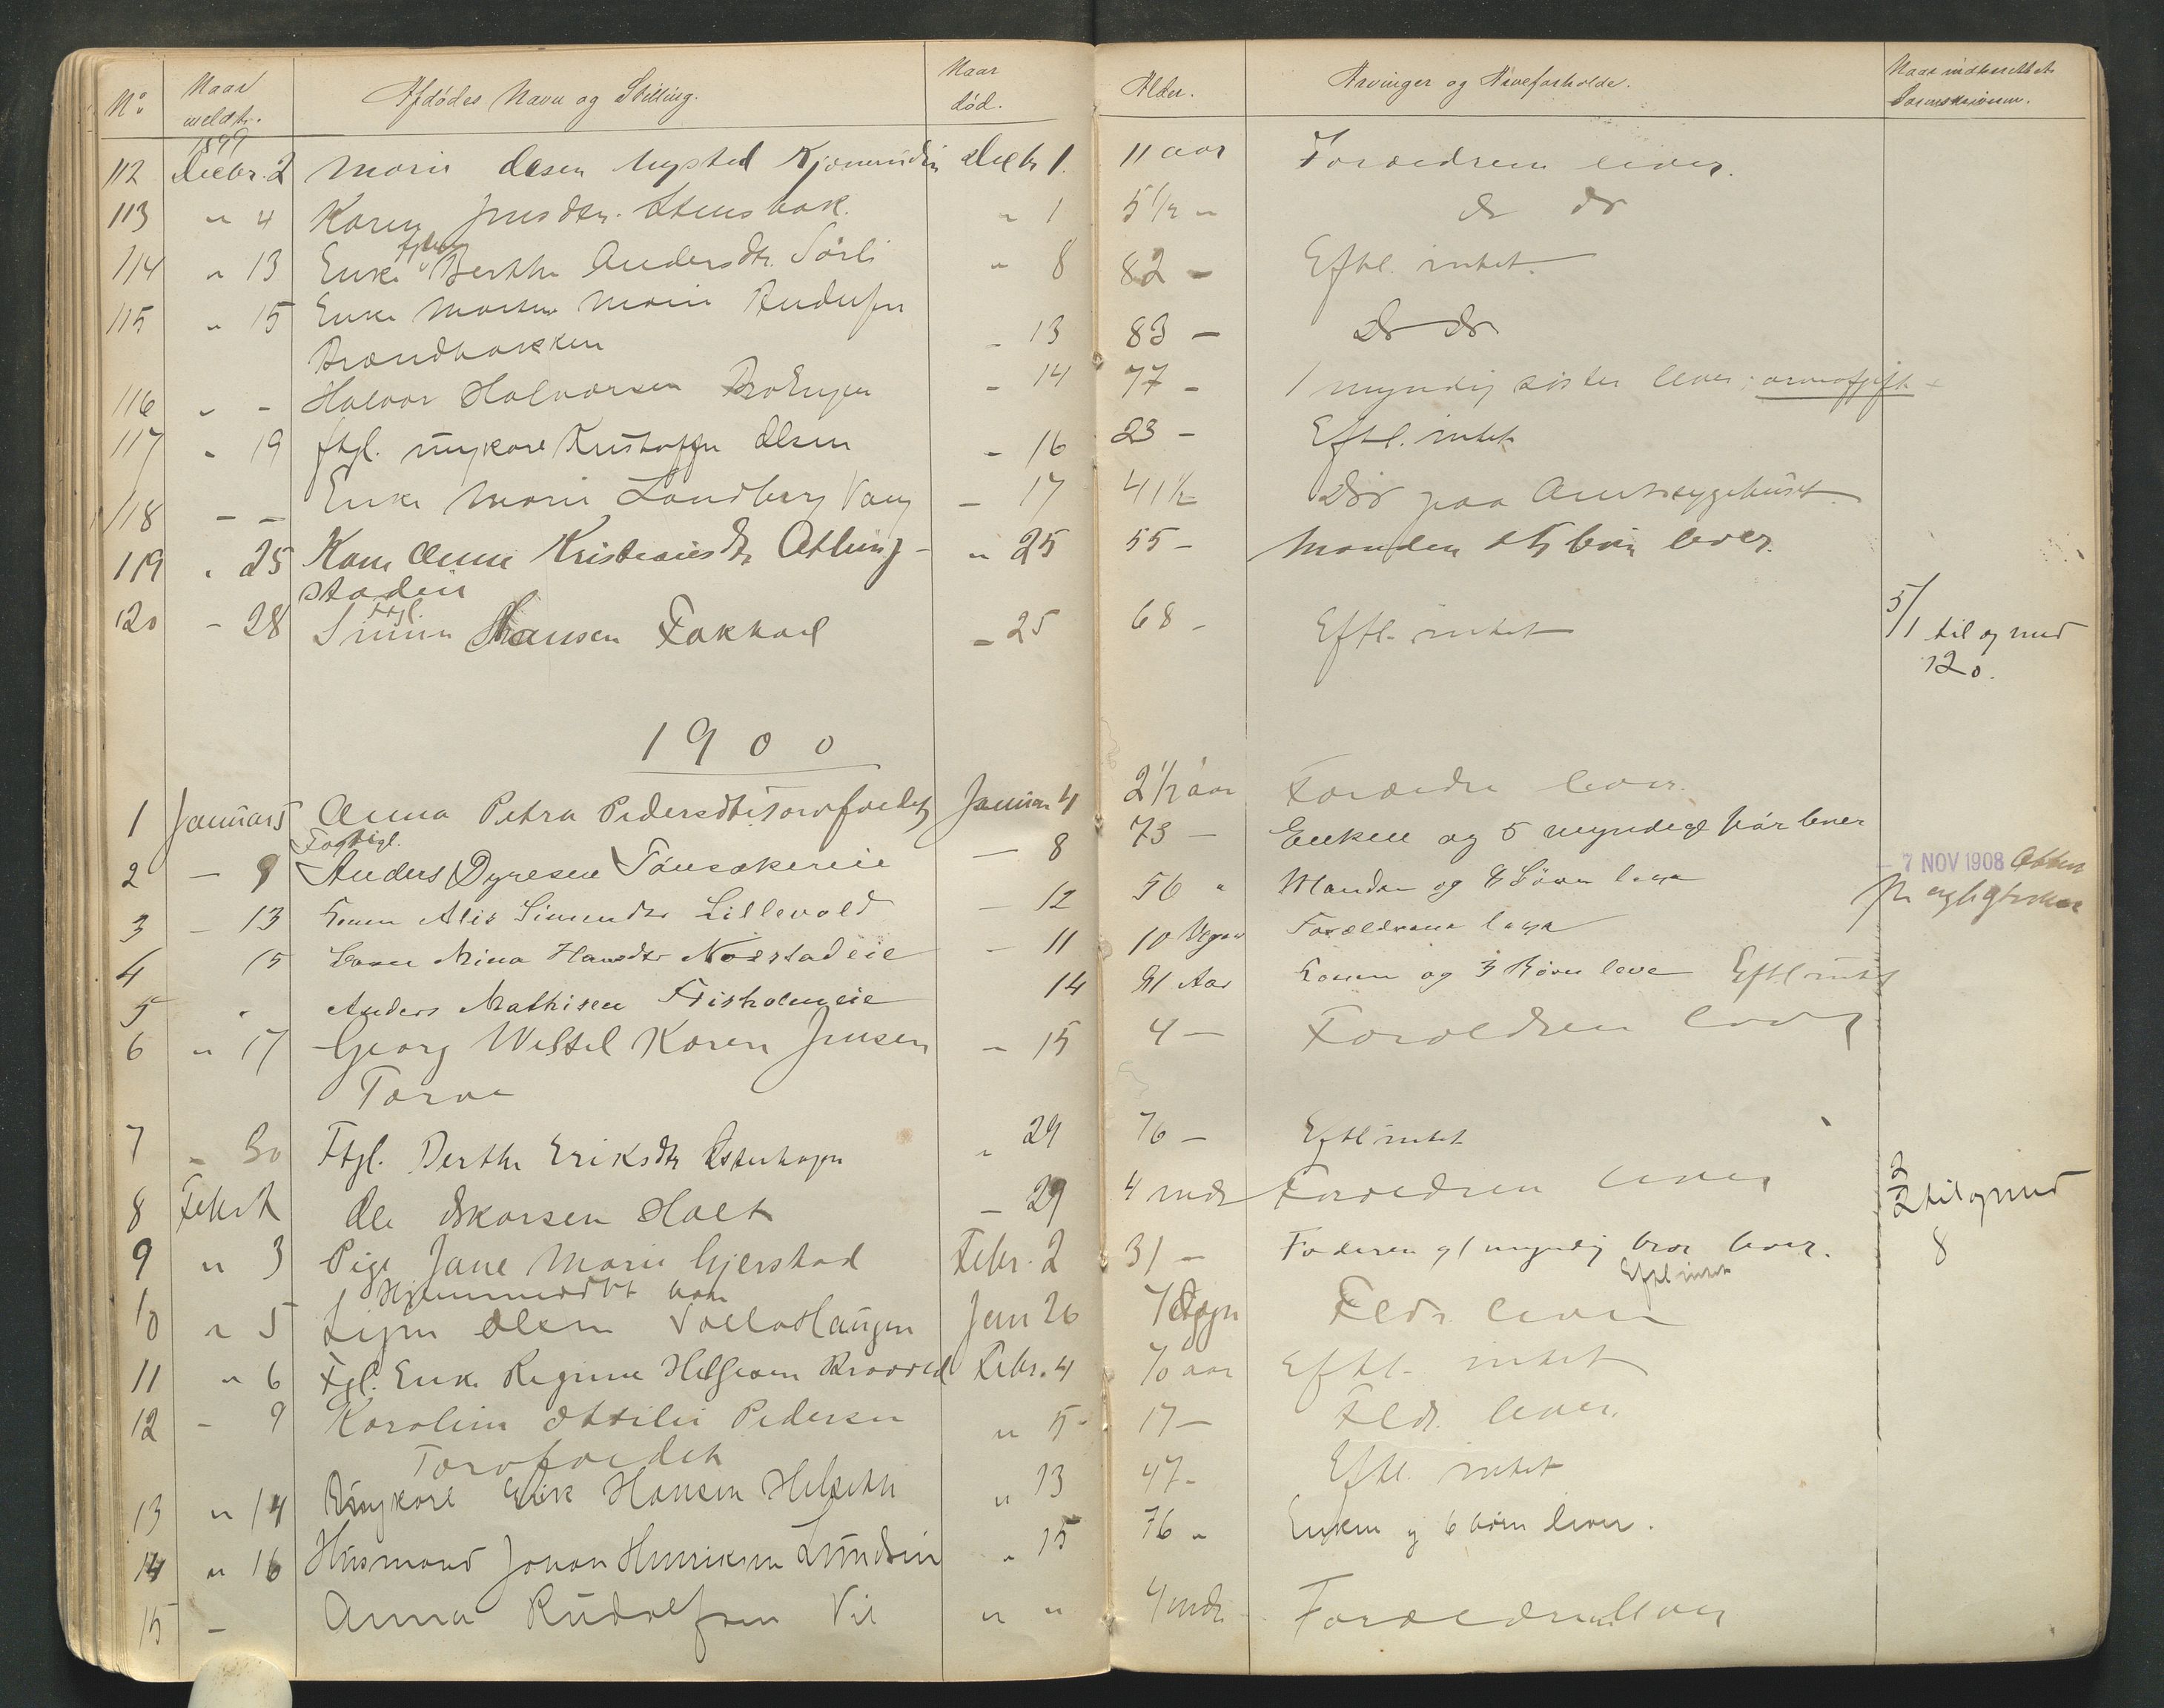 No Naar meldt. Afdødes Navn og Stilling. Naar død. Alder. Arvinger og Arveforholde. Naar indberettet
1899
112 Decbr. 2 Marie Olsen Nysted Decbr 1. 11 aar Forældrene lever.
113 " 4 Karen Jensdtr. Stensbak. " 1 5 1/2 " do do
114 " 13 Enke Berthe Andersdtr. Sørli " 8 82 - Eftl. intet.
115 " 15 Enke Marthe Marie
Brændbakken - 13 83 - do do
116 " - Halvor Halvorsen - 14 77 - 1 myndig søster lever
117 " 19 ftgl. ungkarl Kristoffer Olsen - 16 23 - Eftl. intet
118 - - Enke Marie Landberg Vang - 17 41 1/2 Død paa Amtssygehuset
119 " 25 Kone Anne Kristiansdtr - " 25 55 - Manden børn lever.
stadeie
120 - 28 Simen Hansen Fakkad - 25 68 - Eftl. intet 5/1 til og med
ftgl.
120.
1900
1 Januar 5 Anna Petra Pedersdtr Torvfordet Januar 4 2 1/2 aar Forældre lever.
Fattigl.
2 - 9 Anders Dyresen Tønsakereie - 8 73 - Enken og 5 myndige børn lever
- 7 NOV 1908
3 - 13 Kone Alis Simensdtr Lillevold - 12 56 " Manden og 8 Børn leve
4 15 Mina Hansdtr Norstadeie - 11 10 Forældrene leve
5 " Anders Mathisen Frisholmeie 14 Aar Konen og 3 Børn leve Eftl intet
6 " 17 Georg Karen Jensen - 15 4 - Foreldren lever
Torve
7 - 30 Ftgl. Berthe Eriksdtr " 29 76 - Eftl intet
8 Febr Ole Oskarsen Holt - 29 4 mdr Forældren lever 2/2 til og med
8
9 " 3 Pige Jane Marie Gjerstad Febr. 2 31 - Faderen og 1 myndig bror lever.
Eftl intet
Hjemmedøbt barn
10 " 5 Olsen Jan 26 Fldr. lever
11 " 6 Fgl. Enke Regine Febr. 4 70 aar Eftl. intet
12 - 9 Karoline Ottilie Pedersen " 5 - 17 - Fldr. lever.
Torvfordet
13 " 14 Ungkarl Erik Hansen Helseth " 13 47 - Eftl. intet
14 " 16 Husmand Johan Henriksen " 15 76 " Enken og 6 børn lever.
15 - Anna Rudolfsen Vik " " 4 mdr. Forældrene lever